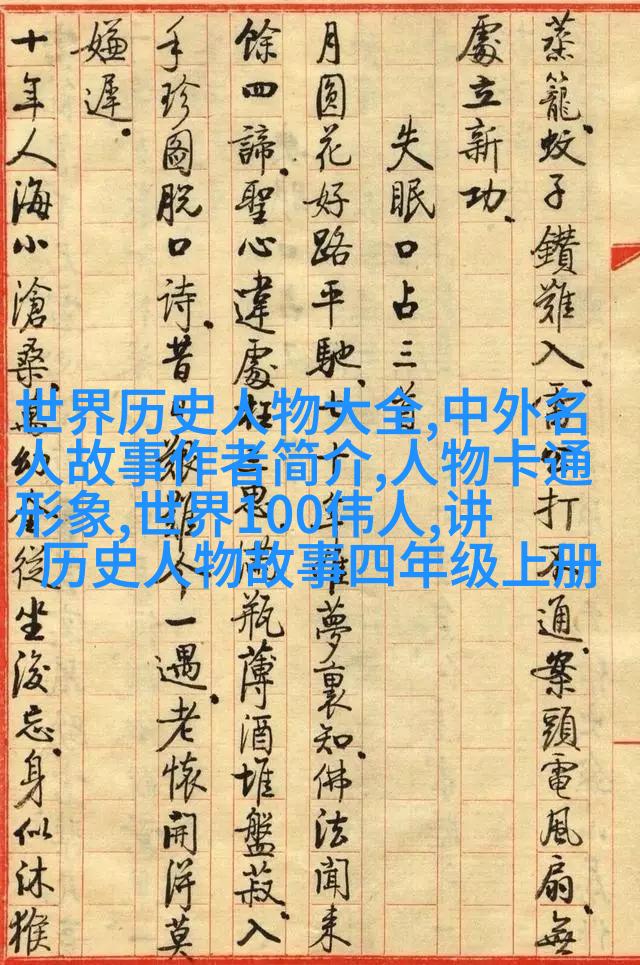 蒸籠。蚊子鑽難入。雷打不通。案頭電風扇。無
處立新功。
失眠口占三首
月圓花好路平馳。七十年華夢裏知。佛法聞來
餘四諦。聖心違處枉三思。滿瓶薄酒堆盤菽。入
手珍圖脫口詩。昔日艱難今一遇。老懷開得莫
嫌遲。
十年人海小滄桑。萬幻全從坐後忘。身似沐猴
世界历史人物大全,中外名
人故事作者简介,人物卡通
形象,世界100伟人,讲
历史人物故事四年级上册